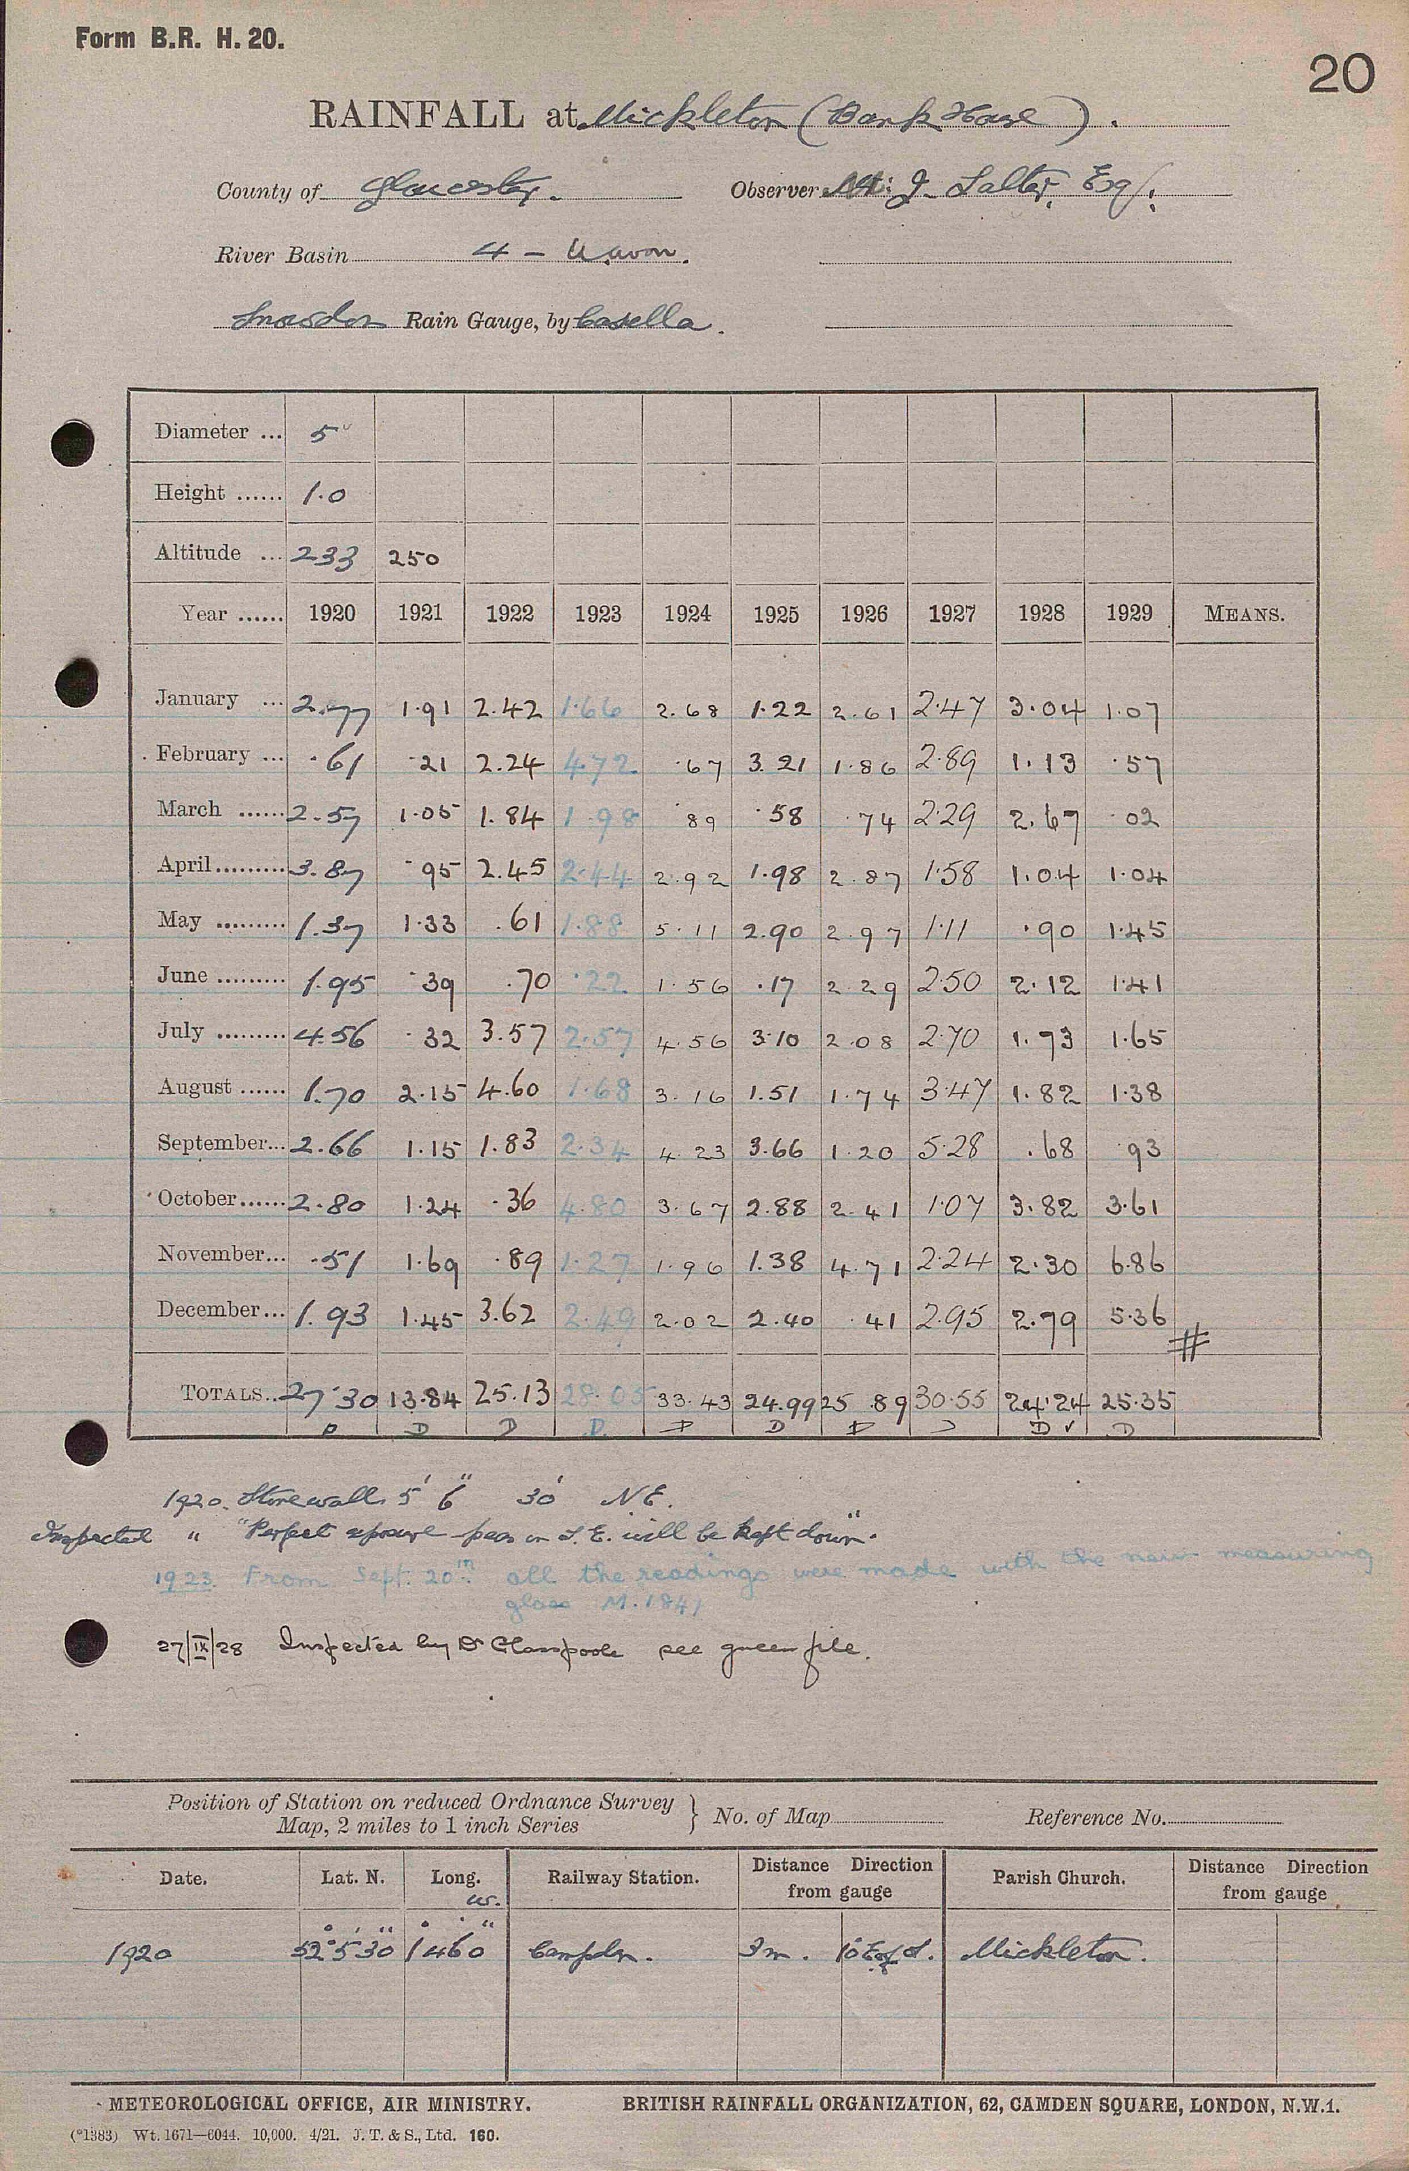 Form B.R. H. 20.
20
RAINFALL at Mickleton (Bank House).
County of Gloucester. Observer J. Salter, Esq.
River Basin 4 - Avon.
Snowdon Rain Gauge, by Casella.
Diameter ... 5"
Height ...... 1.0
Altitude ... 233 250
Year ...... 1920 1921 1922 1923 1924 1925 1926 1927 1928 1929 MEANS.
January ... 2.77 1.91 2.42 1.66 2.68 1.22 2.61 2.47 3.04 1.07
February ... .61 .21 2.24 4.72 .67 3.21 1.86 2.89 1.13 .57
March ...... 2.57 1.05 1.84 1.98 .89 .58 .74 2.29 2.67 .02
April......... 3.87 .95 2.45 2.44 2.92 1.98 2.87 1.58 1.04 1.04
May ......... 1.37 1.33 .61 1.88 5.11 2.90 2.97 1.11 .90 1.45
June ......... 1.95 .39 .70 .22 1.56 .17 2.29 2.50 2.12 1.41
July ......... 4.56 .32 3.57 2.57 4.56 3.10 2.08 2.70 1.73 1.65
August ...... 1.70 2.15 4.60 1.68 3.16 1.51 1.74 3.47 1.82 1.38
September... 2.66 1.15 1.83 2.34 4.23 3.66 1.20 5.28 .68 .93
October...... 2.80 1.24 .36 4.80 3.67 2.88 2.41 1.07 3.82 3.61
November... .51 1.69 .89 1.27 1.96 1.38 4.71 2.24 2.30 6.86
December... 1.93 1.45 3.62 2.49 2.02 2.40 .41 2.95 2.79 5.36 #
TOTALS... 27.30 13.84 25.13 28.05 33.43 24.99 25.89 30.55 24.24 25.35
D D D D D D D D D ✓ D
1920. Stonewall 5' 6" 30' NE.
Inspected " "Perfect exposure peas on S.E. will be kept down".
1923. From Sept. 20th all the readings were made with the new measuring
glass M.1841
27/IX/28 Inspected by Dr Glasspoole see green file.
Position of Station on reduced Ordnance Survey
Map, 2 miles to 1 inch Series } No. of Map Reference No.
Date. Lat. N. Long. W. Railway Station. Distance Direction from gauge Parish Church. Distance Direction from gauge
1920 52° 5' 30" 1° 46' 0" Campden. 3 m. 10° E of S. Mickleton.
METEOROLOGICAL OFFICE, AIR MINISTRY. BRITISH RAINFALL ORGANIZATION, 62, CAMDEN SQUARE, LONDON, N.W.1.
(*1383) Wt. 1671—6044. 10,000. 4/21. J. T. & S., Ltd. 160.